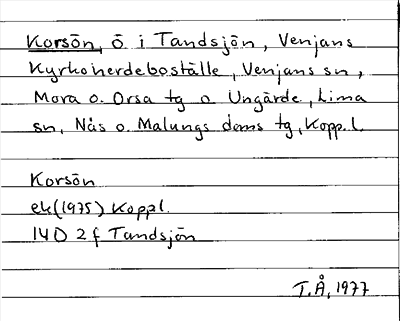 Korsön, ö i Tandsjön, Venjans
Kyrkoherdeboställe, Venjans sn,
Mora o. Orsa tg o Ungärde, Lima
sn, Nås o. Malungs doms tg, Kopp. l.
Korsön
ek (1975) Koppl.
14D 2f Tandsjön
T.Å, 1977